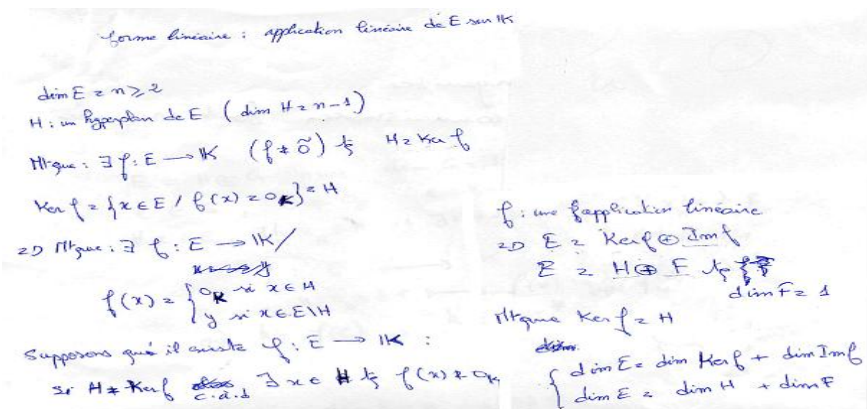 forme linéaire : application linéaire de E sur IK
dim E = n ≥ 2
H : un hyperplan de E ( dim H = n - 1 )
Mtque : ∃ f : E → IK (f ≠ õ) tq H = Ker f
Ker f = {x ∈ E / f(x) = 0_K} = H
=> Mtque : ∃ f : E → IK /
f(x) = { 0_K si x ∈ H
y si x ∈ E\H
Supposons qu'il existe f : E → IK :
si H ≠ Ker f c.à.d ∃ x ∈ H tq f(x) ≠ 0_K
f : une application linéaire
=> E = Ker f ⊕ Im f
E = H ⊕ F tq
dim F = 1
Mtque Ker f = H
{ dim E = dim Ker f + dim Im f
dim E = dim H + dim F